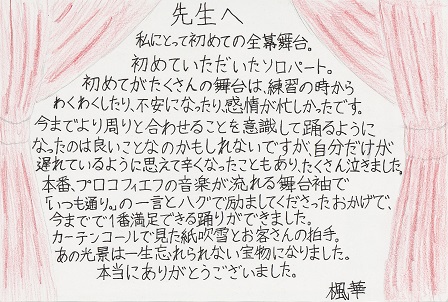 先生へ
私にとって初めての全幕舞台。
初めていただいたソロパート。
初めてがたくさんの舞台は、練習の時から
わくわくしたり、不安になったり、感情が忙しかったです。
今までより周りと合わせることを意識して踊るように
なったのは良いことなのかもしれないですが、自分だけが
遅れているように思えて辛くなったこともあり、たくさん泣きました。
本番、プロコフィエフの音楽が流れる舞台袖で
「いつも通り。」の一言とハグで励ましてくださったおかげで、
今までで1番満足できる踊りができました。
カーテンコールで見た紙吹雪とお客さんの拍手。
あの光景は一生忘れられない宝物になりました。
本当にありがとうございました。
楓華